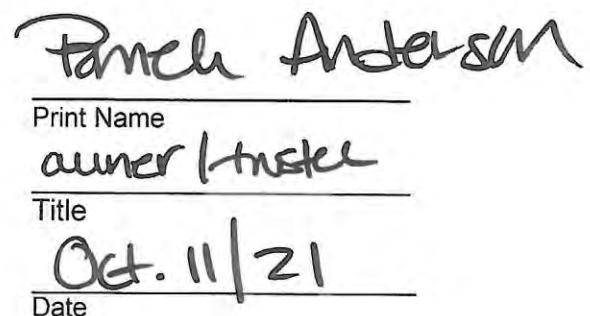 Pamela Anderson
Print Name
owner / trustee
Title
Oct. 11/21
Date